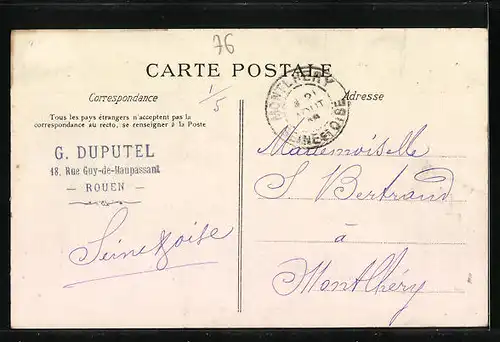 76
CARTE POSTALE
1/5
Correspondance
Adresse
MONTLHERY
21
AOUT
SEINE-&-OISE
Tous les pays étrangers n'acceptent pas la
correspondance au recto, se renseigner à la Poste
G. DUPUTEL
18, Rue Guy-de-Maupassant
— ROUEN —
Mademoiselle
S. Bertrand
à
Montlhéry
Seine & oise